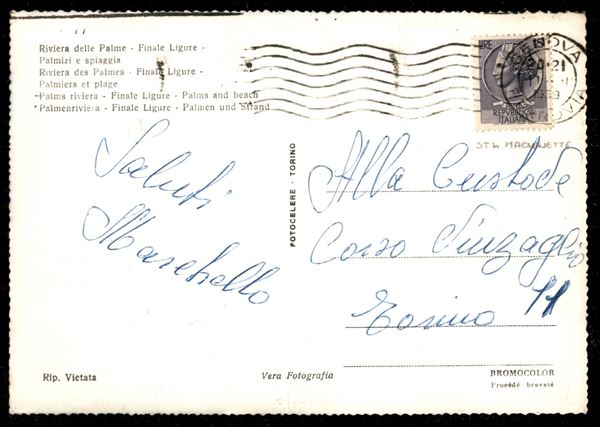 Riviera delle Palme - Finale Ligure -
Palmizi e spiaggia
Riviera des Palmes - Finale Ligure -
Palmiers et plage
Palms riviera - Finale Ligure - Palms and beach
Palmenriviera - Finale Ligure - Palmen und Strand
LIRE
REPUBBLICA
ITALIANA
GENOVA
21
1959
FERROVIA
ST4 MACCHIETTE
Saluti
Marchello
FOTOCELERE - TORINO
Alla Custode
Corso Vinzaglio
11
Torino
Rip. Vietata
Vera Fotografia
BROMOCOLOR
Procédé breveté